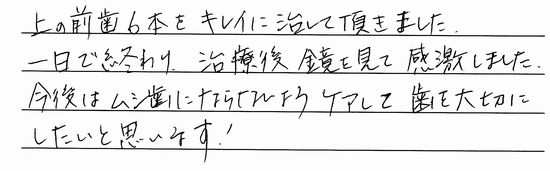 上の前歯6本をキレイに治して頂きました.
一日で終わり、治療後鏡を見て感激しました.
今後はムシ歯にならないようケアして歯を大切に
したいと思います!